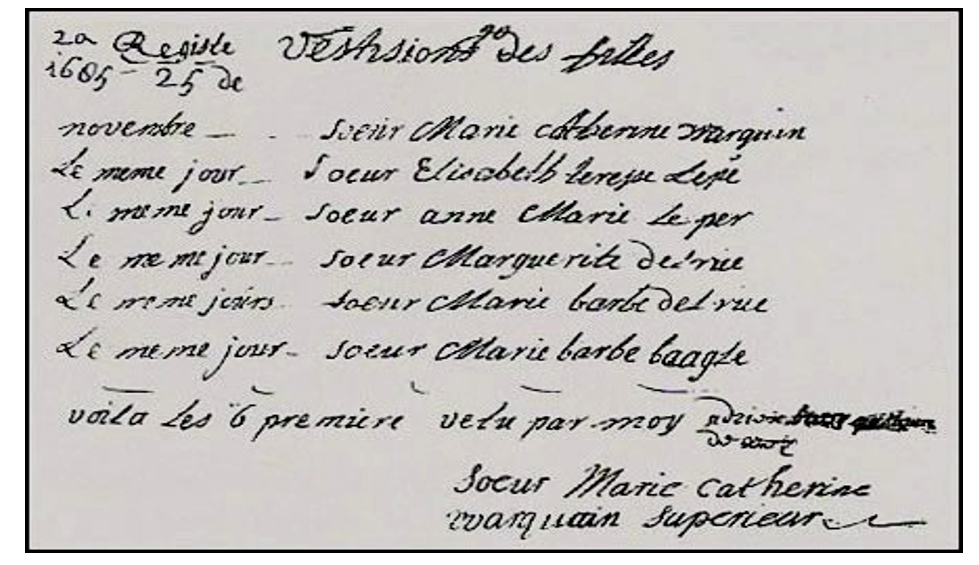 2a Registe Vestisions des filles
1685 - 25 de
novembre - - Soeur Marie catherine warquin
Le meme jour - Soeur Elisabeth terese Lepé
Le meme jour - Soeur anne Marie le per
Le meme jour - Soeur Marguerite delrue
Le meme jours Soeur Marie barbe delrue
Le meme jour - Soeur Marie barbe baagle
voila les 6 premiere vetu par moy
Soeur Marie catherine
warquain Superieure